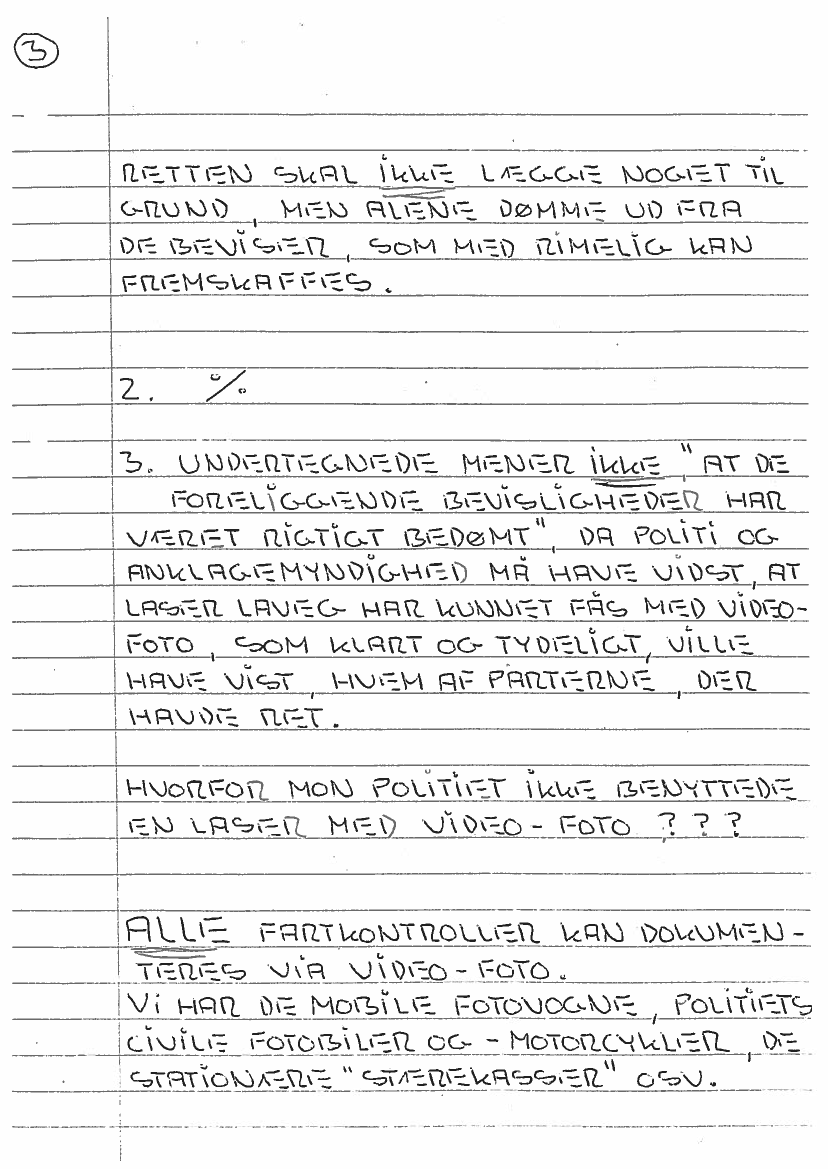 3
RETTEN SKAL IKKE LÆGGE NOGET TIL
GRUND, MEN ALENE DØMME UD FRA
DE BEVISER, SOM MED RIMELIG KAN
FREMSKAFFES.
2. %
3. UNDERTEGNEDE MENER IKKE "AT DE
FORELIGGENDE BEVISLIGHEDER HAR
VÆRET RIGTIGT BEDØMT", DA POLITI OG
ANKLAGEMYNDIGHED MÅ HAVE VIDST, AT
LASER LAVEG HAR KUNNET FÅS MED VIDEO-
FOTO, SOM KLART OG TYDELIGT, VILLE
HAVE VIST, HVEM AF PARTERNE, DER
HAVDE RET.
HVORFOR MON POLITIET IKKE BENYTTEDE
EN LASER MED VIDEO-FOTO ???
ALLE FARTKONTROLLER KAN DOKUMEN-
TERES VIA VIDEO-FOTO.
VI HAR DE MOBILE FOTOVOGNE, POLITIETS
CIVILE FOTOBILER OG -MOTORCYKLER, DE
STATIONÆRE "STÆREKASSER" OSV.